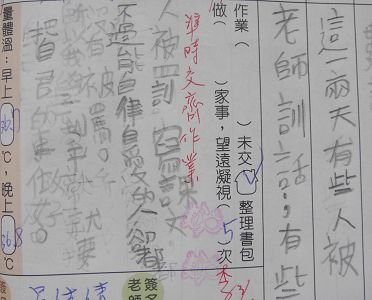 這一兩天有些人被
老師訓話，有些
作業（ ）未交（✓）整理書包
做（ ）家事，望遠凝視（5）次
準時交齊作業
人被罰寫課文
不過能自律自愛的人卻都
沒被罵。
就要
把自己的事做好
量體溫：早上 ℃，晚上 36.8 ℃
老師
簽名